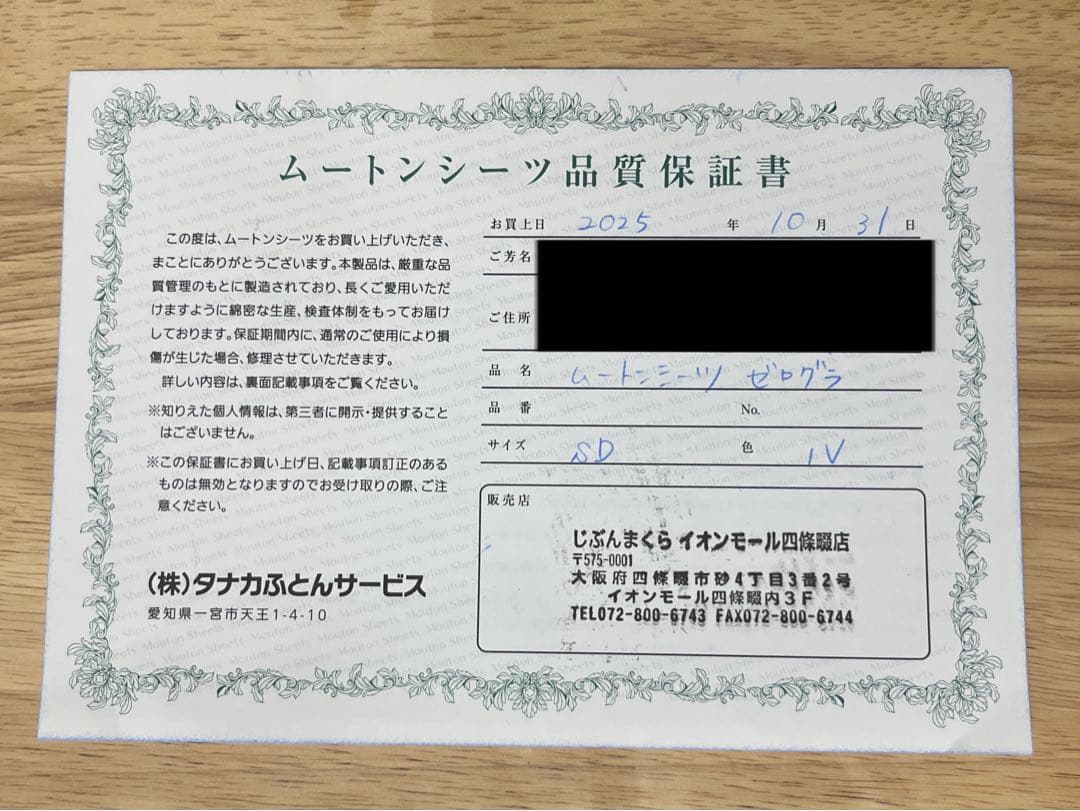 ムートンシーツ品質保証書
この度は、ムートンシーツをお買い上げいただき、
まことにありがとうございます。本製品は、厳重な品
質管理のもとに製造されており、長くご愛用いただ
けますように綿密な生産、検査体制をもってお届け
しております。保証期間内に、通常のご使用により損
傷が生じた場合、修理させていただきます。
詳しい内容は、裏面記載事項をご覧ください。
※知りえた個人情報は、第三者に開示・提供すること
はございません。
※この保証書にお買い上げ日、記載事項訂正のある
ものは無効となりますのでお受け取りの際、ご注
意ください。
(株)タナカふとんサービス
愛知県一宮市天王1-4-10
お買上日 2025 年 10 月 31 日
ご芳名
ご住所
品名 ムートンシーツ ゼログラ
品番 No.
サイズ SD 色 IV
販売店
じぶんまくら イオンモール四條畷店
〒575-0001
大阪府四條畷市砂4丁目3番2号
イオンモール四條畷内3F
TEL072-800-6743 FAX072-800-6744